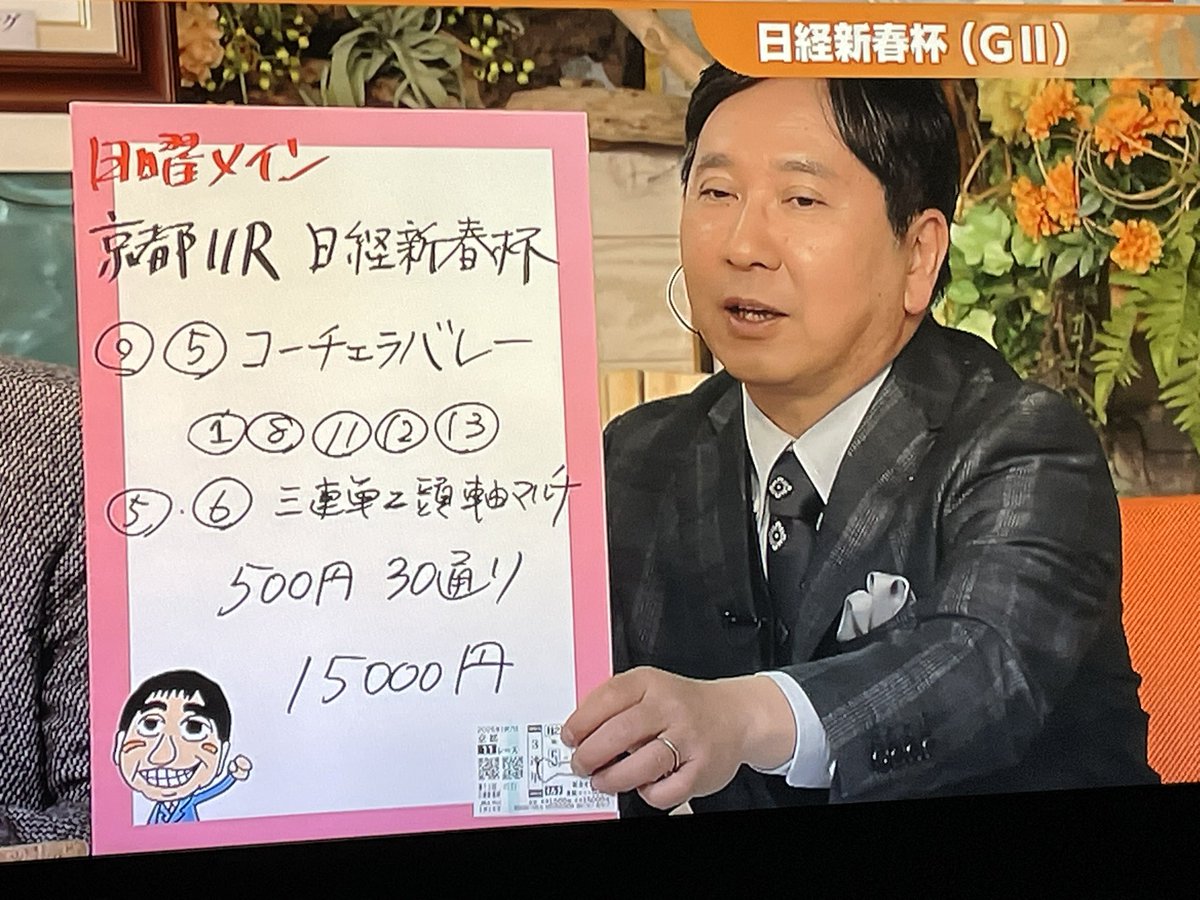 日経新春杯(GⅡ)
日曜メイン
京都11R 日経新春杯
◎⑤コーチェラバレー
①⑧⑪⑫⑬
⑤・⑥ 三連単2頭軸マルチ
500円 30通り
15000円
京都
11レース